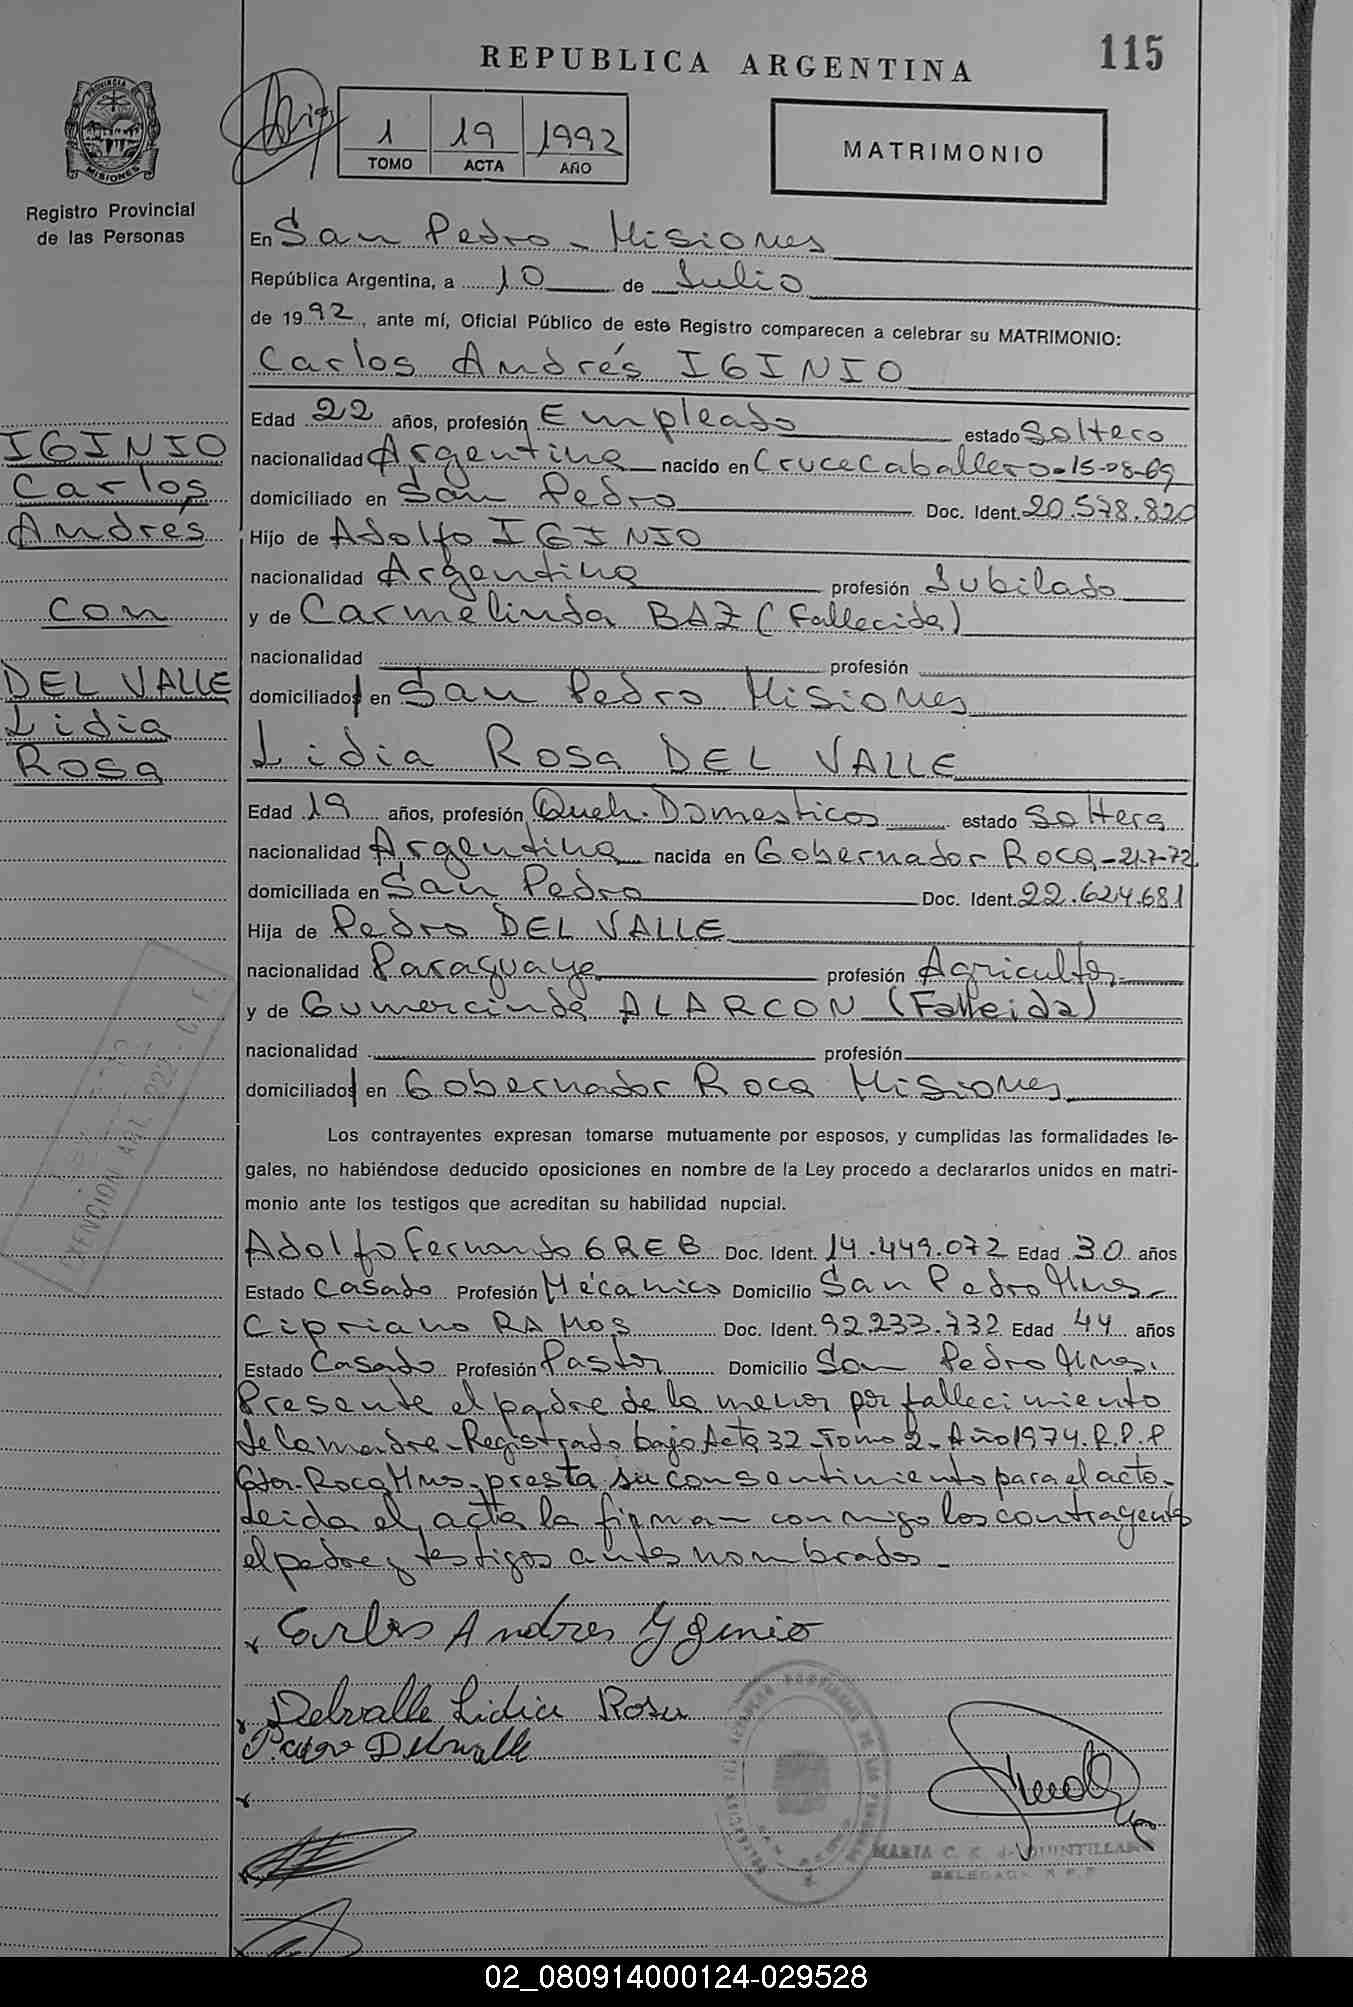 REPUBLICA ARGENTINA
115
PROVINCIA DE
MISIONES
Registro Provincial
de las Personas
1 19 1992
TOMO ACTA AÑO
MATRIMONIO
En San Pedro - Misiones
República Argentina, a 10 de Julio
de 1992, ante mí, Oficial Público de este Registro comparecen a celebrar su MATRIMONIO:
Carlos Andrés IGINIO
Edad 22 años, profesión Empleado estado Soltero
nacionalidad Argentina nacido en Cruce Caballero - 15-08-69
domiciliado en San Pedro Doc. Ident. 20.578.820
Hijo de Adolfo IGINIO
nacionalidad Argentina profesión Jubilado
y de Carmelinda BAZ (Fallecida)
nacionalidad profesión
domiciliados en San Pedro Misiones
Lidia Rosa DEL VALLE
Edad 19 años, profesión Queh. Domesticos estado Soltera
nacionalidad Argentina nacida en Gobernador Roca - 21-7-72
domiciliada en San Pedro Doc. Ident. 22.624.681
Hija de Pedro DEL VALLE
nacionalidad Paraguaya profesión Agricultor
y de Gumercinda ALARCON (Falleida)
nacionalidad profesión
domiciliados en Gobernador Roca Misiones
Los contrayentes expresan tomarse mutuamente por esposos, y cumplidas las formalidades le-
gales, no habiéndose deducido oposiciones en nombre de la Ley procedo a declararlos unidos en matri-
monio ante los testigos que acreditan su habilidad nupcial.
Adolfo Fernando GREB Doc. Ident. 14.449.072 Edad 30 años
Estado Casado Profesión Mécanico Domicilio San Pedro Mnes.
Cipriano RAMOS Doc. Ident. 92.233.732 Edad 44 años
Estado Casado Profesión Pastor Domicilio San Pedro Mnes.
Presente el padre de la menor por fallecimiento
de la madre - Registrado bajo Acta 32 - Tomo 2 - Año 1974. R.P.P
Gdor. Roca Mnes, presta su consentimiento para el acto.
Leida el acta la firman conmigo los contrayents
el padre y testigos antes nombrados.
Carlos Andres Yginio
Delvalle Lidia Rosa
Pedro Delvalle
MARIA C. K. de QUINTILLAN
DELEGADA R.P.P
IGINIO
Carlos
Andrés
con
DEL VALLE
Lidia
Rosa
EXENCION ART. 222 - C. F.
02_080914000124-029528